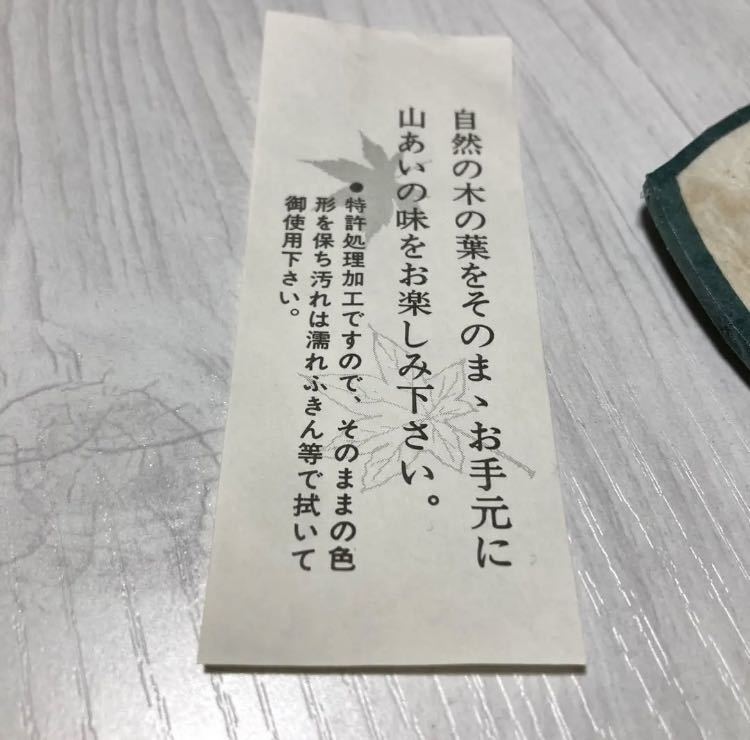 自然の木の葉をそのまゝお手元に
山あいの味をお楽しみ下さい。
●特許処理加工ですので、そのままの色
形を保ち汚れは濡れふきん等で拭いて
御使用下さい。